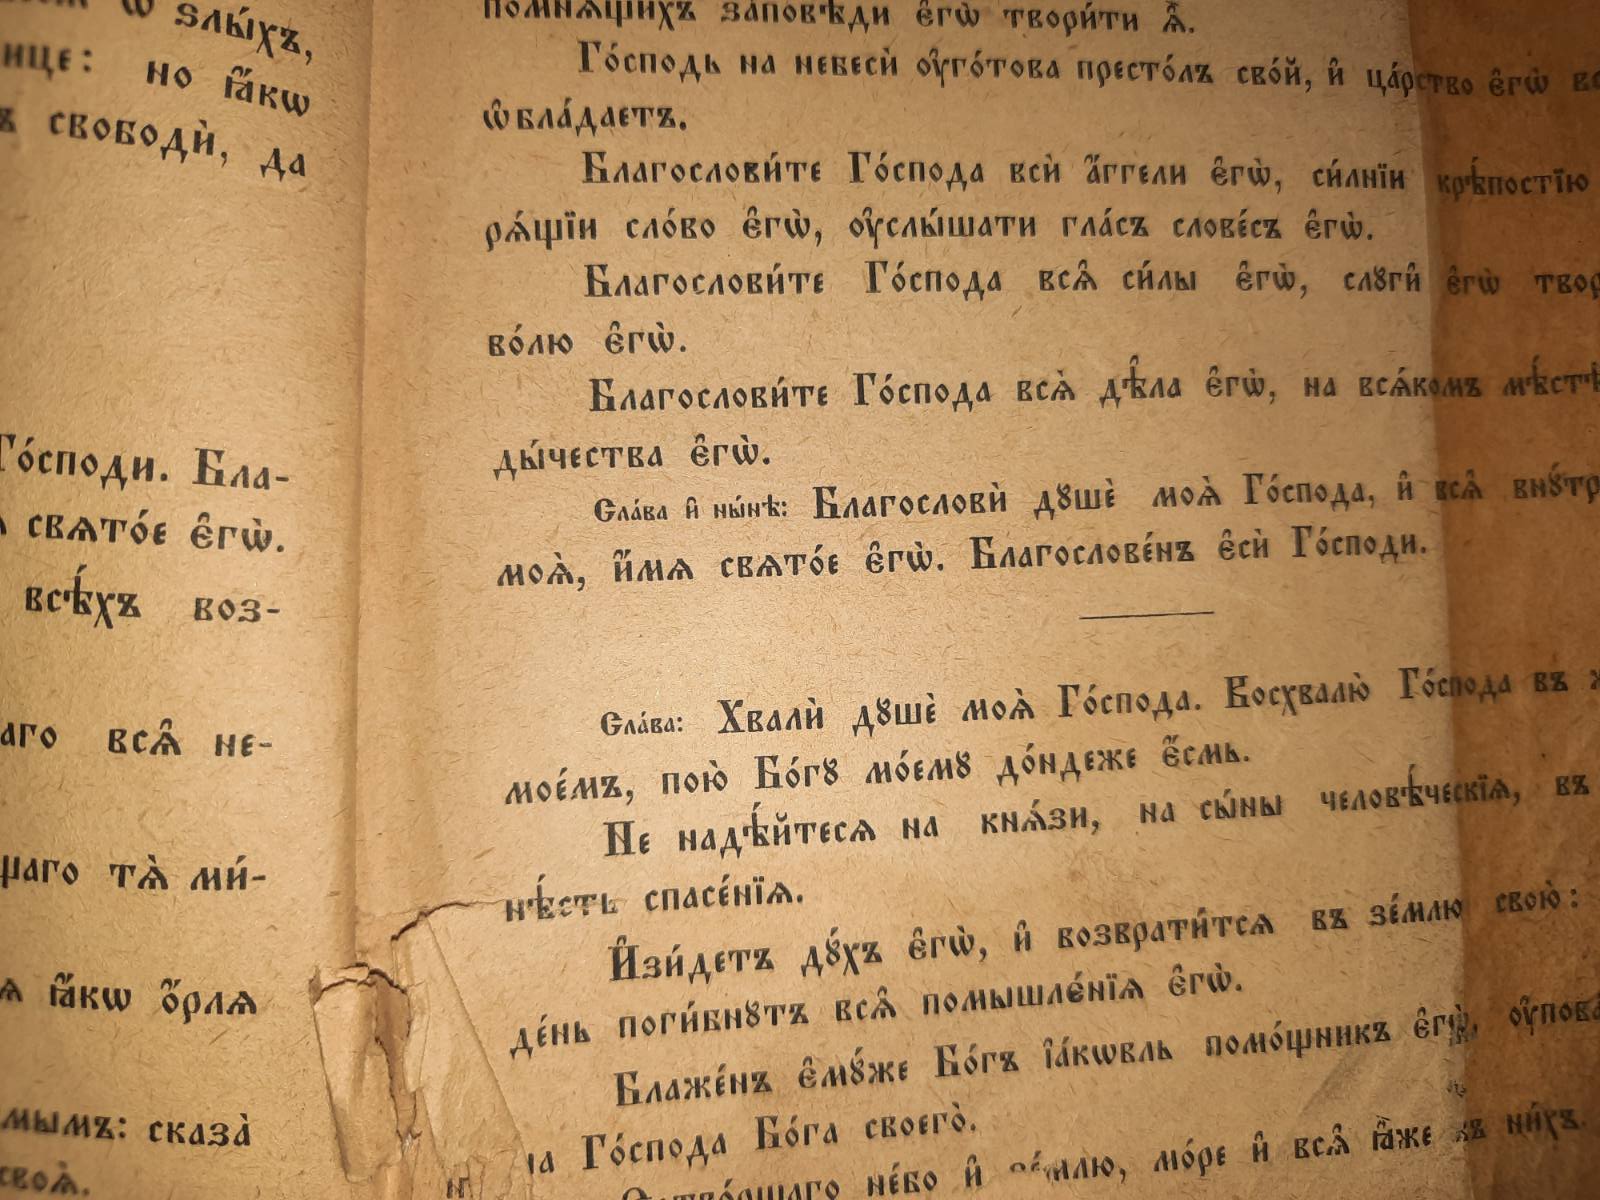 ѿ ѕлы́хъ,
но ꙗ҆́кѡ
свободѝ, да
Го́споди. Бла-
свѧто́е є҆гѡ̀.
всѣ́хъ воз-
всѧ̑ не-
тѧ̀ ми́-
ꙗ҆́кѡ ѻ҆́рлѧ
сказа̀
своѧ̀.
помнѧщихъ за́повѣди є҆гѡ̀ твори́ти ѧ҆̀.
Го́сподь на небесѝ ᲂу҆гото́ва престо́лъ сво́й, и҆ ца́рство є҆гѡ̀
ѡ҆блада́етъ.
Благослови́те Го́спода всѝ а҆́ггели є҆гѡ̀, си́лнїи крѣ́постїю
рѧ́щїи сло́во є҆гѡ̀, ᲂу҆слы́шати гла́съ слове́съ є҆гѡ̀.
Благослови́те Го́спода всѧ̑ си́лы є҆гѡ̀, слꙋги̑ є҆гѡ̀
во́лю є҆гѡ̀.
Благослови́те Го́спода всѧ̀ дѣ̑ла є҆гѡ̀, на всѧ́комъ
ды́чества є҆гѡ̀.
Сла́ва и҆ ны́нѣ: Благословѝ дꙋшѐ моѧ̀ Го́спода, и҆ всѧ̑
моѧ̀, и҆́мѧ свѧто́е є҆гѡ̀. Благослове́нъ є҆сѝ Го́споди.
Сла́ва: Хвалѝ дꙋшѐ моѧ̀ Го́спода. Восхвалю̀ Го́спода въ
мое́мъ, пою̀ Бо́гꙋ мо́емꙋ до́ндеже є҆́смь.
Не надѣ́йтесѧ на кнѧ́зи, на сы́ны человѣ́ческїѧ, въ
нѣ́сть спасе́нїѧ.
И҆зи́детъ дꙋ́хъ є҆гѡ̀, и҆ возврати́тсѧ въ зе́млю свою̀:
де́нь поги́бнꙋтъ всѧ̑ помышле́нїѧ є҆гѡ̀.
Блаже́нъ є҆мꙋ́же Бо́гъ і҆а́кѡвль помо́щникъ є҆гѡ̀,
на Го́спода Бо́га своего̀.
не́бо и҆ зе́млю, мо́ре и҆ всѧ̑ ꙗ҆̀же въ ни́хъ.